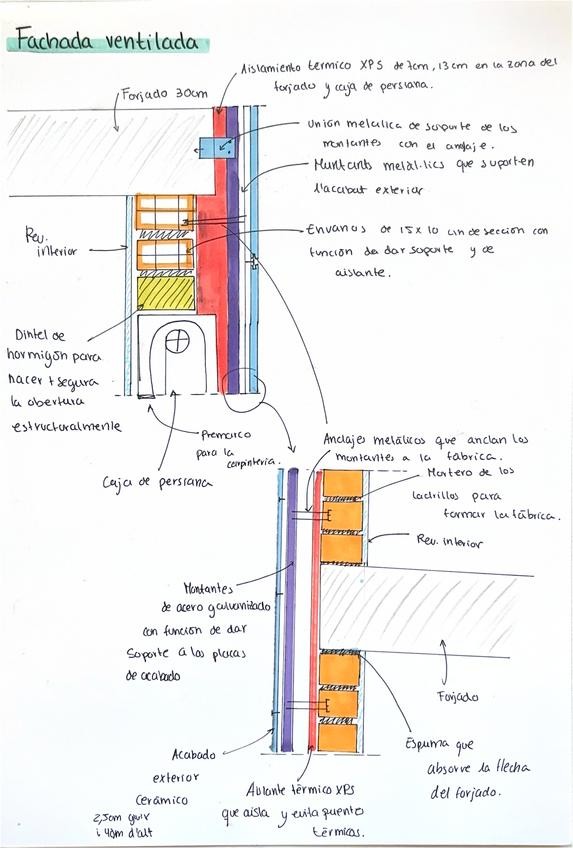 Fachada ventilada
Aislamiento térmico XPS de 7cm, 13cm en la zona del
forjado y caja de persiana.
Forjado 30cm
Unión metálica de soporte de los
montantes con el anclaje.
Muntants metàl·lics que suporten
l'acabat exterior
Rev.
interior
Envanos de 15x10 cm de sección con
función de dar soporte y de
aislante.
Dintel de
hormigón para
hacer + segura
la abertura
estructuralmente
Premarco
para la
carpintería.
Caja de persiana
Anclajes metálicos que anclan los
montantes a la fábrica.
Mortero de los
ladrillos para
formar la fábrica.
Rev. interior
Montantes
de acero galvanizado
con función de dar
soporte a las placas
de acabado
Forjado
Espuma que
absorve la flecha
del forjado.
Acabado
exterior
cerámico
2,5cm gruix
i 40m d'alt
Aislante térmico XPS
que aisla y evita puente
térmicos.